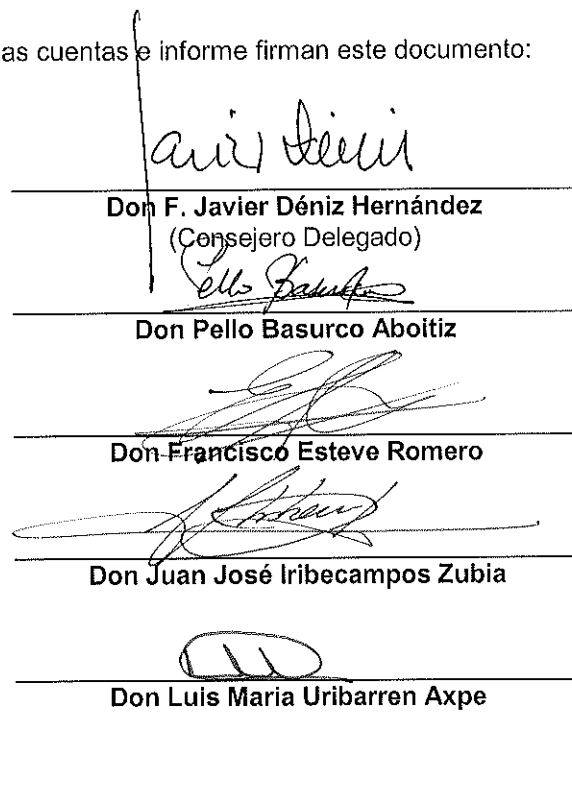 as cuentas e informe firman este documento:
Don F. Javier Déniz Hernández
(Consejero Delegado)
Pello Basurco
Don Pello Basurco Aboitiz
Don Francisco Esteve Romero
Don Juan José Iribecampos Zubia
Don Luis Maria Uribarren Axpe